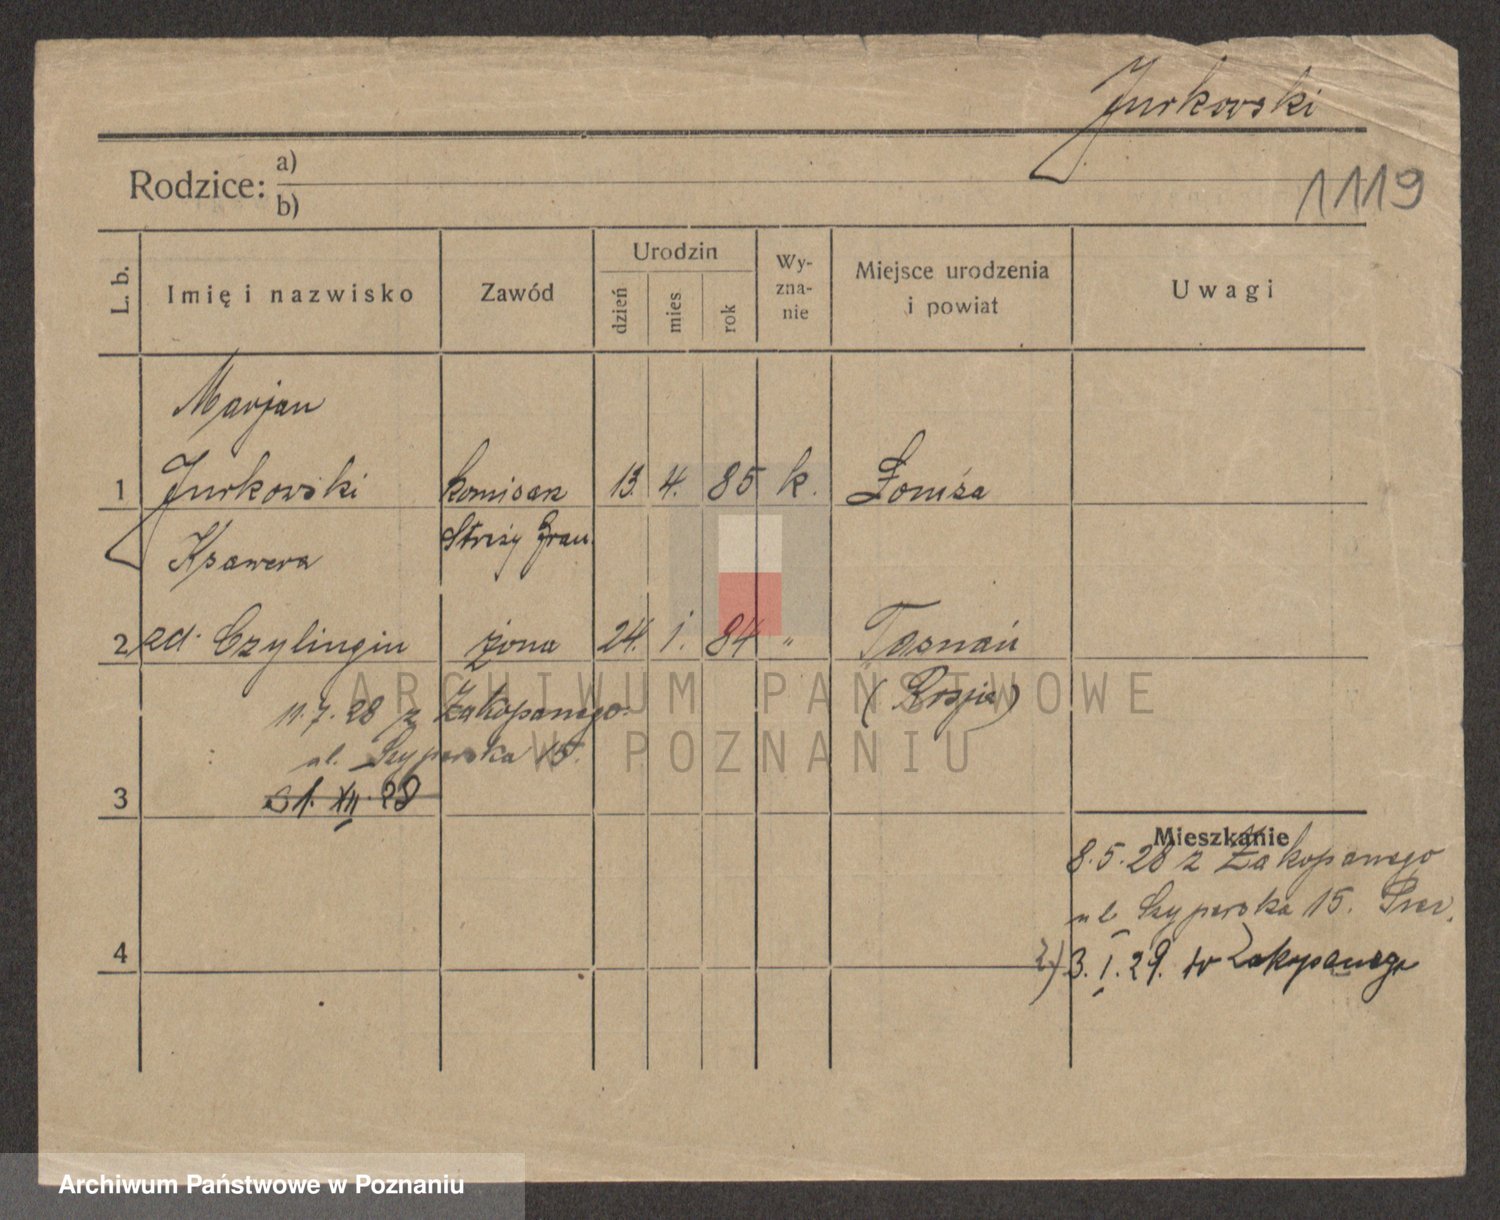 Jurkowski
Rodzice: a)
b)
1119
L. b.
Imię i nazwisko
Zawód
Urodzin
dzień
mies
rok
Wy-
zna-
nie
Miejsce urodzenia
i powiat
Uwagi
Marjan
1 Jurkowski komisarz 13. 4. 85 k. Łomża
Ksawera Straży Gran.
2 zd. Czylingin żona 24. 1. 84 „ Tasnań
(Rosja)
11.7.28 z Zakopanego
ul. Szyperska 15.
3 31. XII. 28
Mieszkanie
8.5.28 z Zakopanego
ul. Szyperska 15.
4 2) 3. I. 29. do Zakopanego
ARCHIWUM PAŃSTWOWE
W POZNANIU
Archiwum Państwowe w Poznaniu